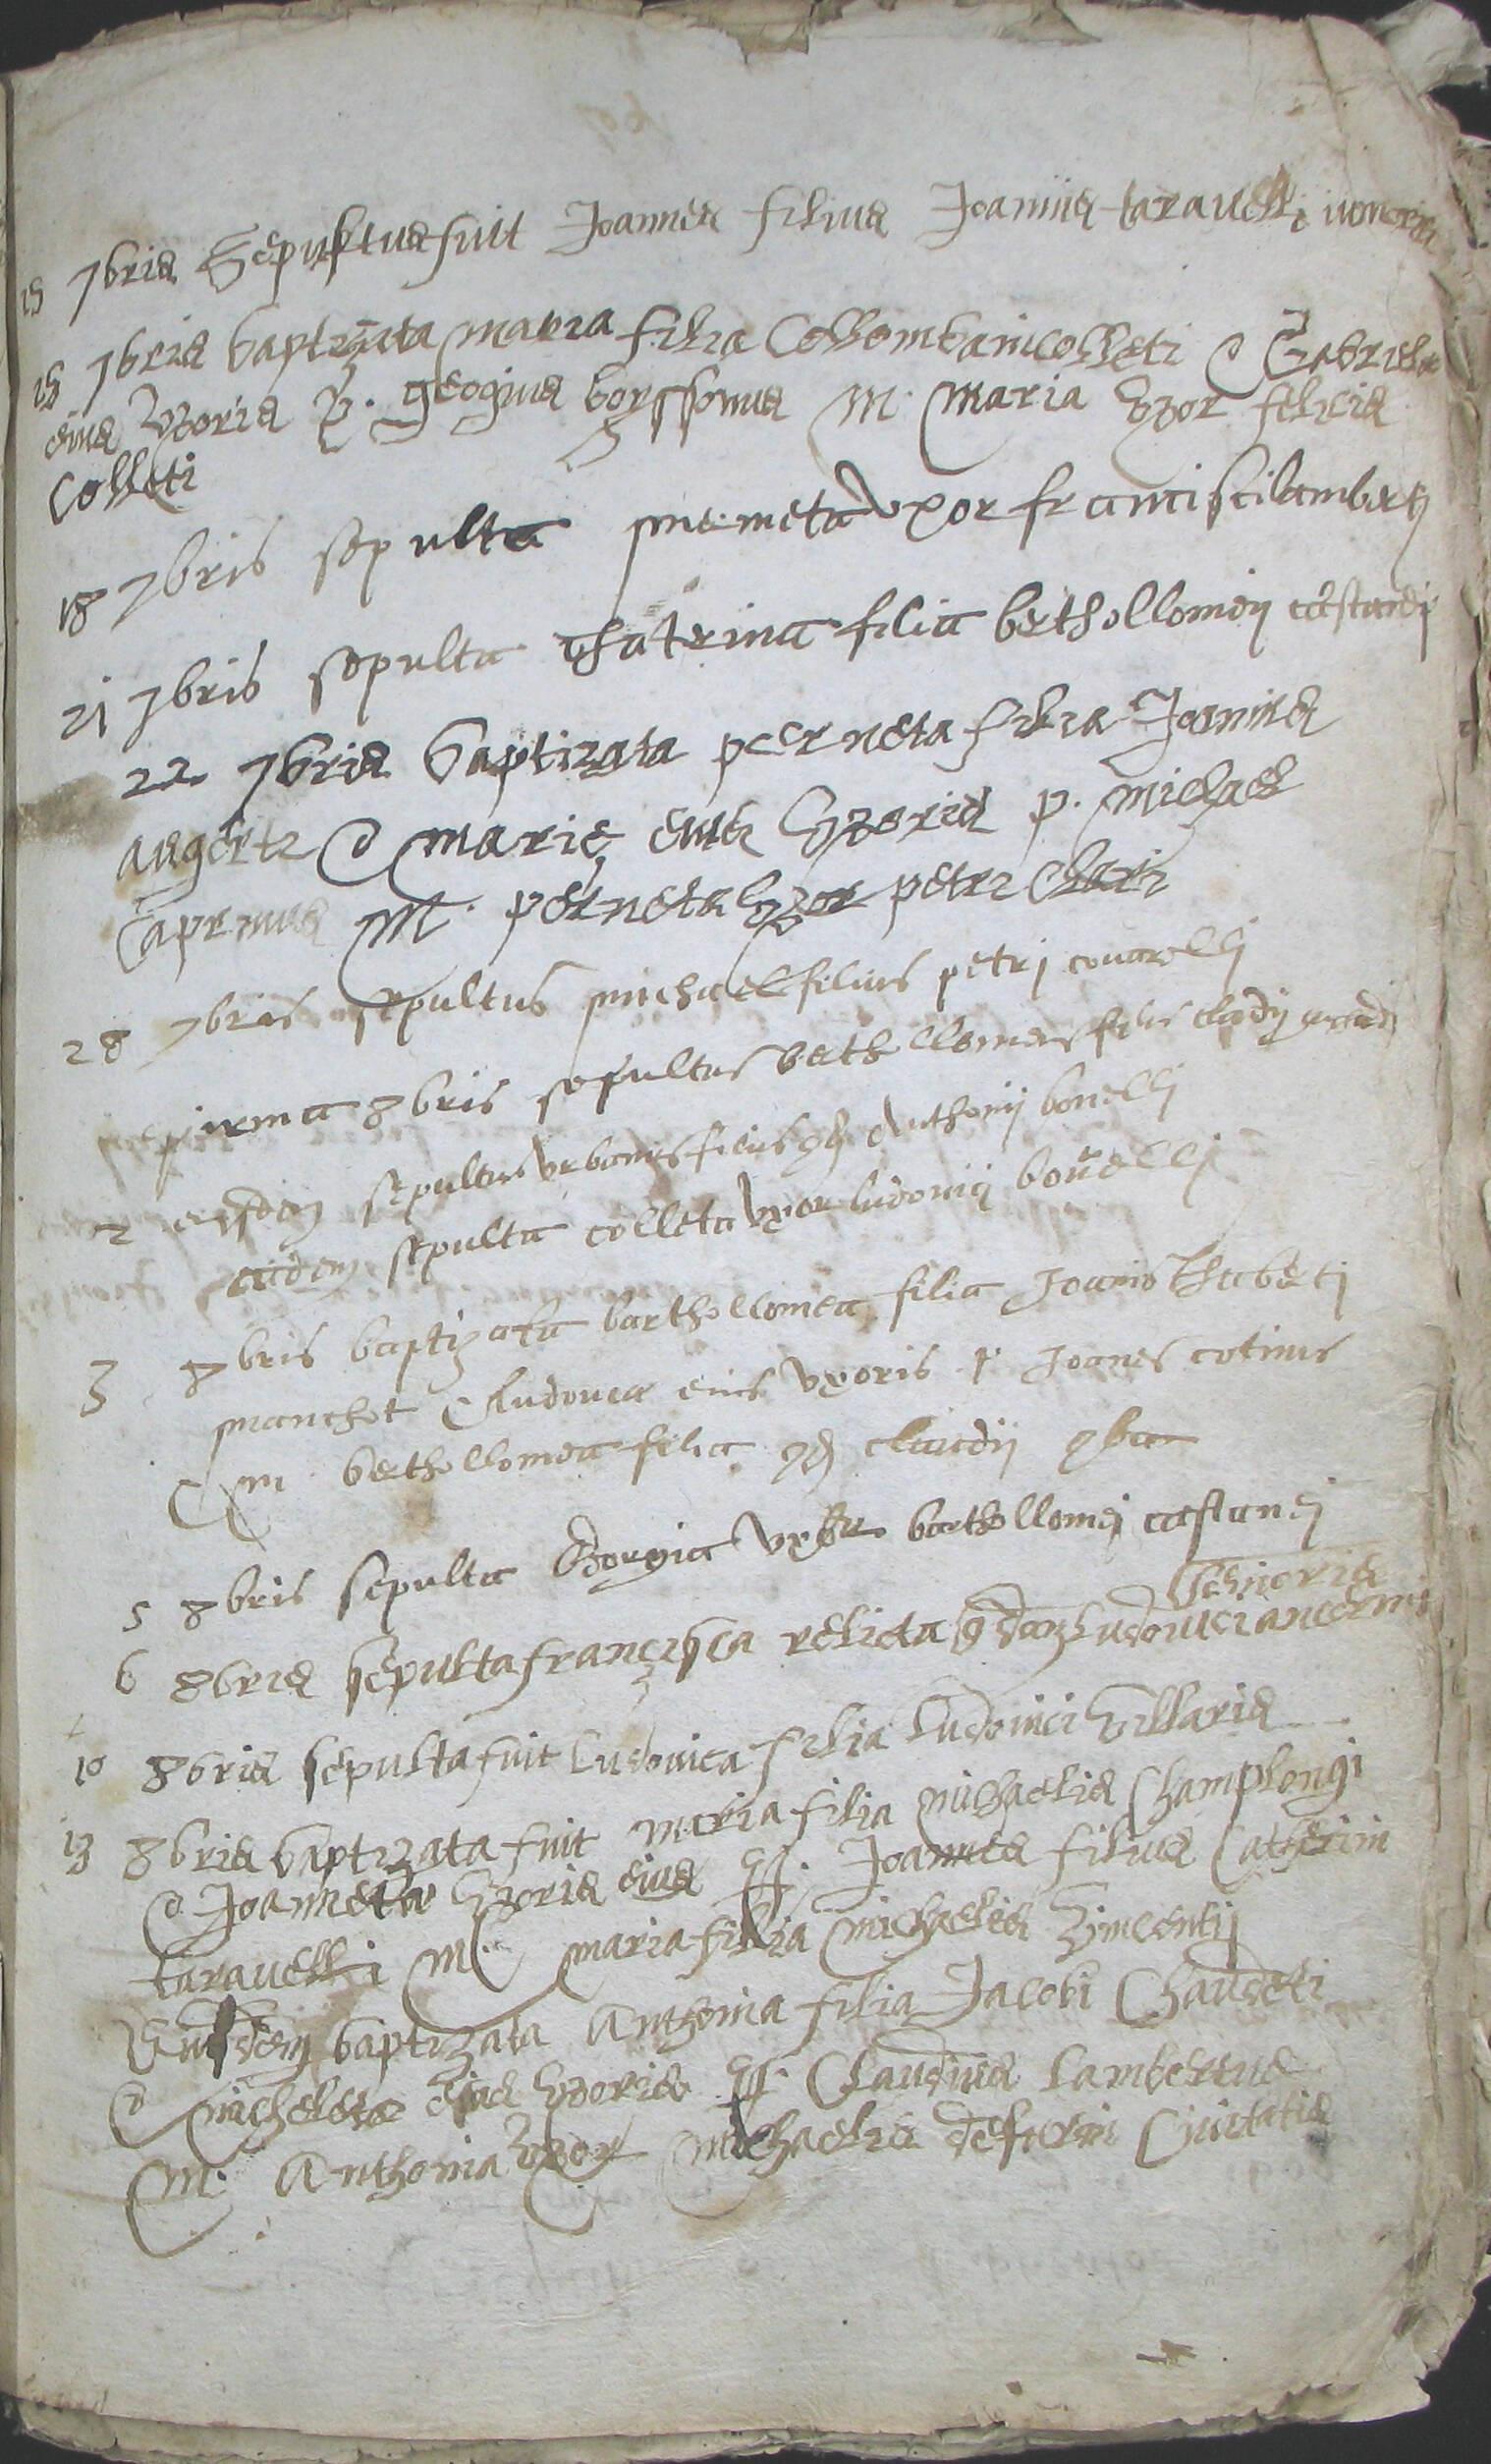 15 7bris Sepultus fuit Joannes filius Joannis taravelli iunioris
15 7bris baptizata maria filia Collombani colleti & Gabriela
eius Vxoris P. geogius boyssonus M. Maria Vxor felicis
Colleti
18 7bris sepulta meta vxor francisci lamberti
21 7bris sepulta Chatrina filia berthollomey castandi
22 7bris baptizata perneta filia Joannis
augerti & marie eius Vxoris p. michael
M. perneta Vxor petri clari
28 7bris sepultus michaell filius petri
prima 8bris sepultus berthollomeus filius
2 eiusdem sepultus vrbanus filius qd Anthonij bonelli
eiusdem sepulta colleta vxor ludovici bonelli
3 8bris baptizata barthollomea filia Joanis thaberti
manchot & ludovica eius vxoris p. Joanes cotinus
& m. berthollomea filia qd claudij
5 8bris sepulta Georgia vxor barthollomei
senioris
6 8bris sepulta francisca relicta qdam Ludovici
10 8bris sepulta fuit Ludovica filia Ludovici Villaris
13 8bris baptizata fuit maria filia michaelis Champlongi
& Joanneta Vxoris eius P. Joannes filius Catherini
taravelli M. maria filia michaelis Vincentij
Eiusdem baptizata Anthonia filia Jacobi Chaudeti
& micheleta eius Vxoris P. Claudius Lambertus
M. Anthonia Vxor michaelis Civitatis